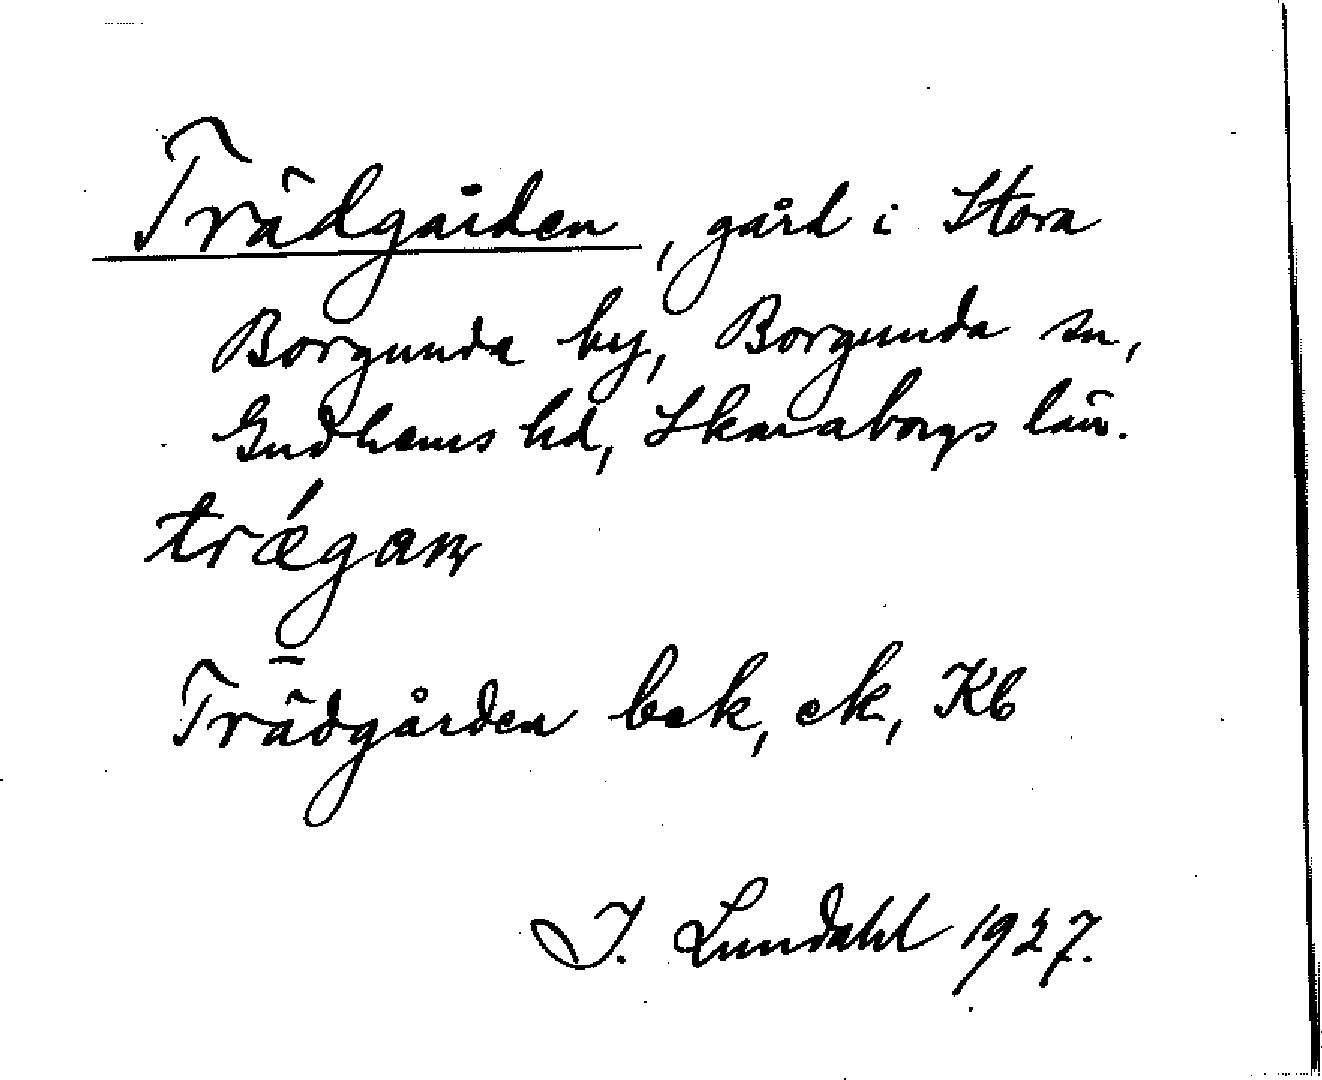 Trädgården, gård i Stora
Borgunda by, Borgunda sn,
Gudhems hd, Skaraborgs län.
trǽgaɳ
Trädgården bek, ek, Kb
I. Lundahl 1927.